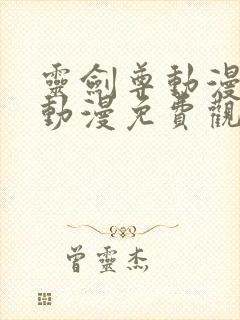 靈劍尊動漫
動漫免費觀
曾靈杰